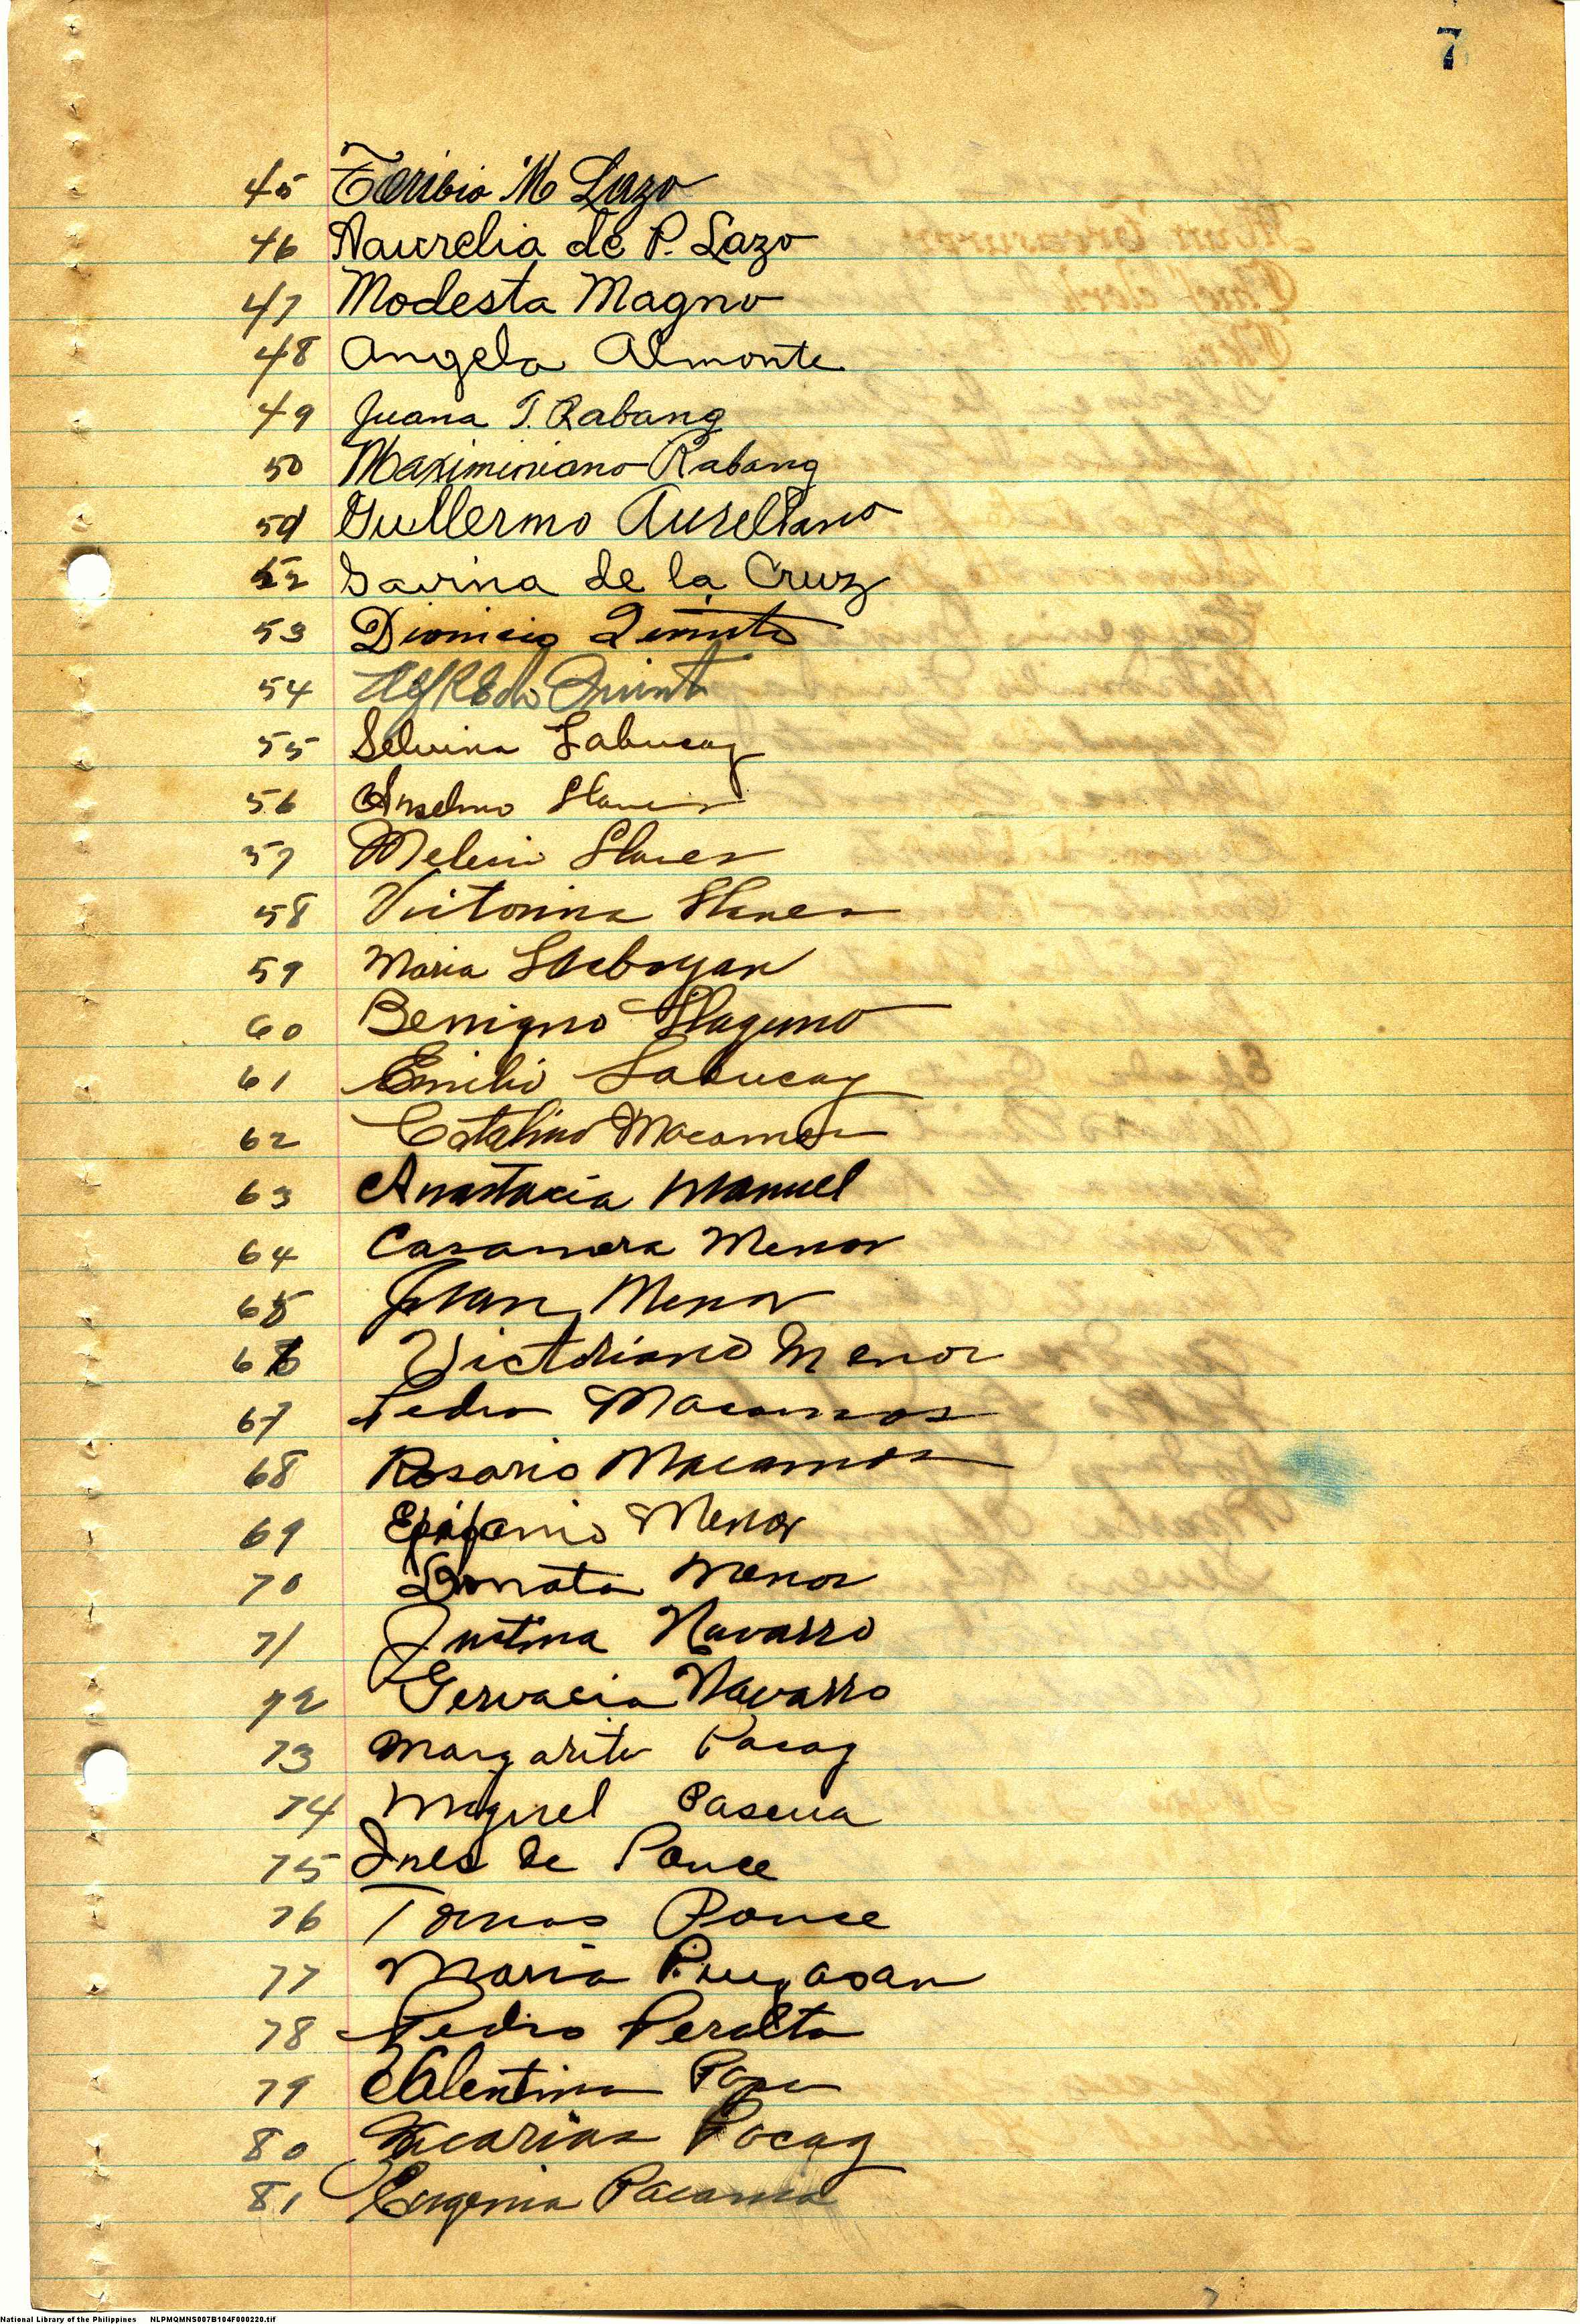 7
45 Toribio M Lazo
46 Aaurelia de P. Lazo
47 Modesta Magno
48 Angela Almonte
49 Juana T. Rabang
50 Maximiniano Rabang
51 Guillermo Aureliano
52 Savina de la Cruz
53 Dionicio Quinto
54 Alfredo Quinto
55 Selvina Labucay
56 Anselmo Llanes
57 Melecio Llanes
58 Victorina Llanes
59 Maria
60 Benigno Llaguno
61 Emilio Labucay
62 Catalino Macamos
63 Anastacia Manuel
64 Casamera Menor
65 Juan Menor
66 Victoriano Menor
67 Pedro Macamos
68 Rosario Macamos
69 Epifanio Menor
70 Donata Menor
71 Justina Navarro
72 Gervacia Navarro
73 Margarito Pacag
74 Miguel Pascua
75 Ines de Ponce
76 Tomas Ponce
77 Maria
78 Pedro Peralta
79 Valentina
80 Macarias Pacag
81 Eugenia
National Library of the Philippines NLPMQMNS007B104F000220.tif